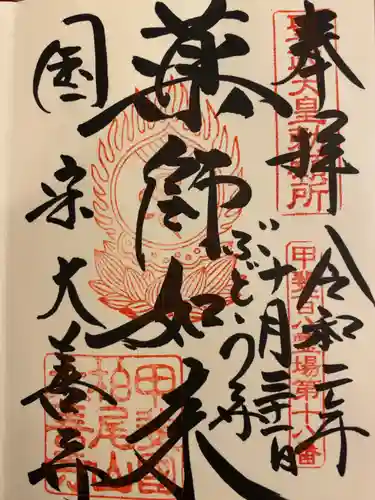 奉拝
聖武天皇勅願所
甲斐百八霊場第十八番
令和二年
十月三十一日
ぶどう寺
薬師如来
国宝大善寺
甲斐國
柏尾山
大善寺